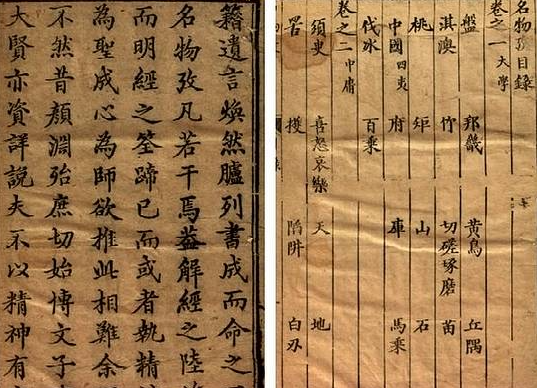 籍遺言煥然臚列書成而命之
名物攷凡若干焉葢解經之陸
而明經之筌蹄已而或者執精
為聖成心為師欲推此相難余
不然昔顏淵殆庶切始博文子
大賢亦資詳說夫不以精神有
名物攷目錄
卷之一 大學
盤 邦畿 黃鳥 丘隅
淇澳 竹 切磋琢磨 苗
桃 矩 山 石
中國 四夷 府 庫 馬乘
伐冰 百乘
卷之二 中庸
須臾 喜怒哀樂 天 地
罟 擭 陷阱 白刃